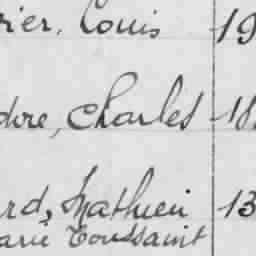 rier, Louis 19
dore, Charles 18
rd, Mathieu 13
arie Toussaint